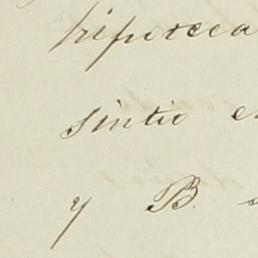 hipoteca
sintio
y B.